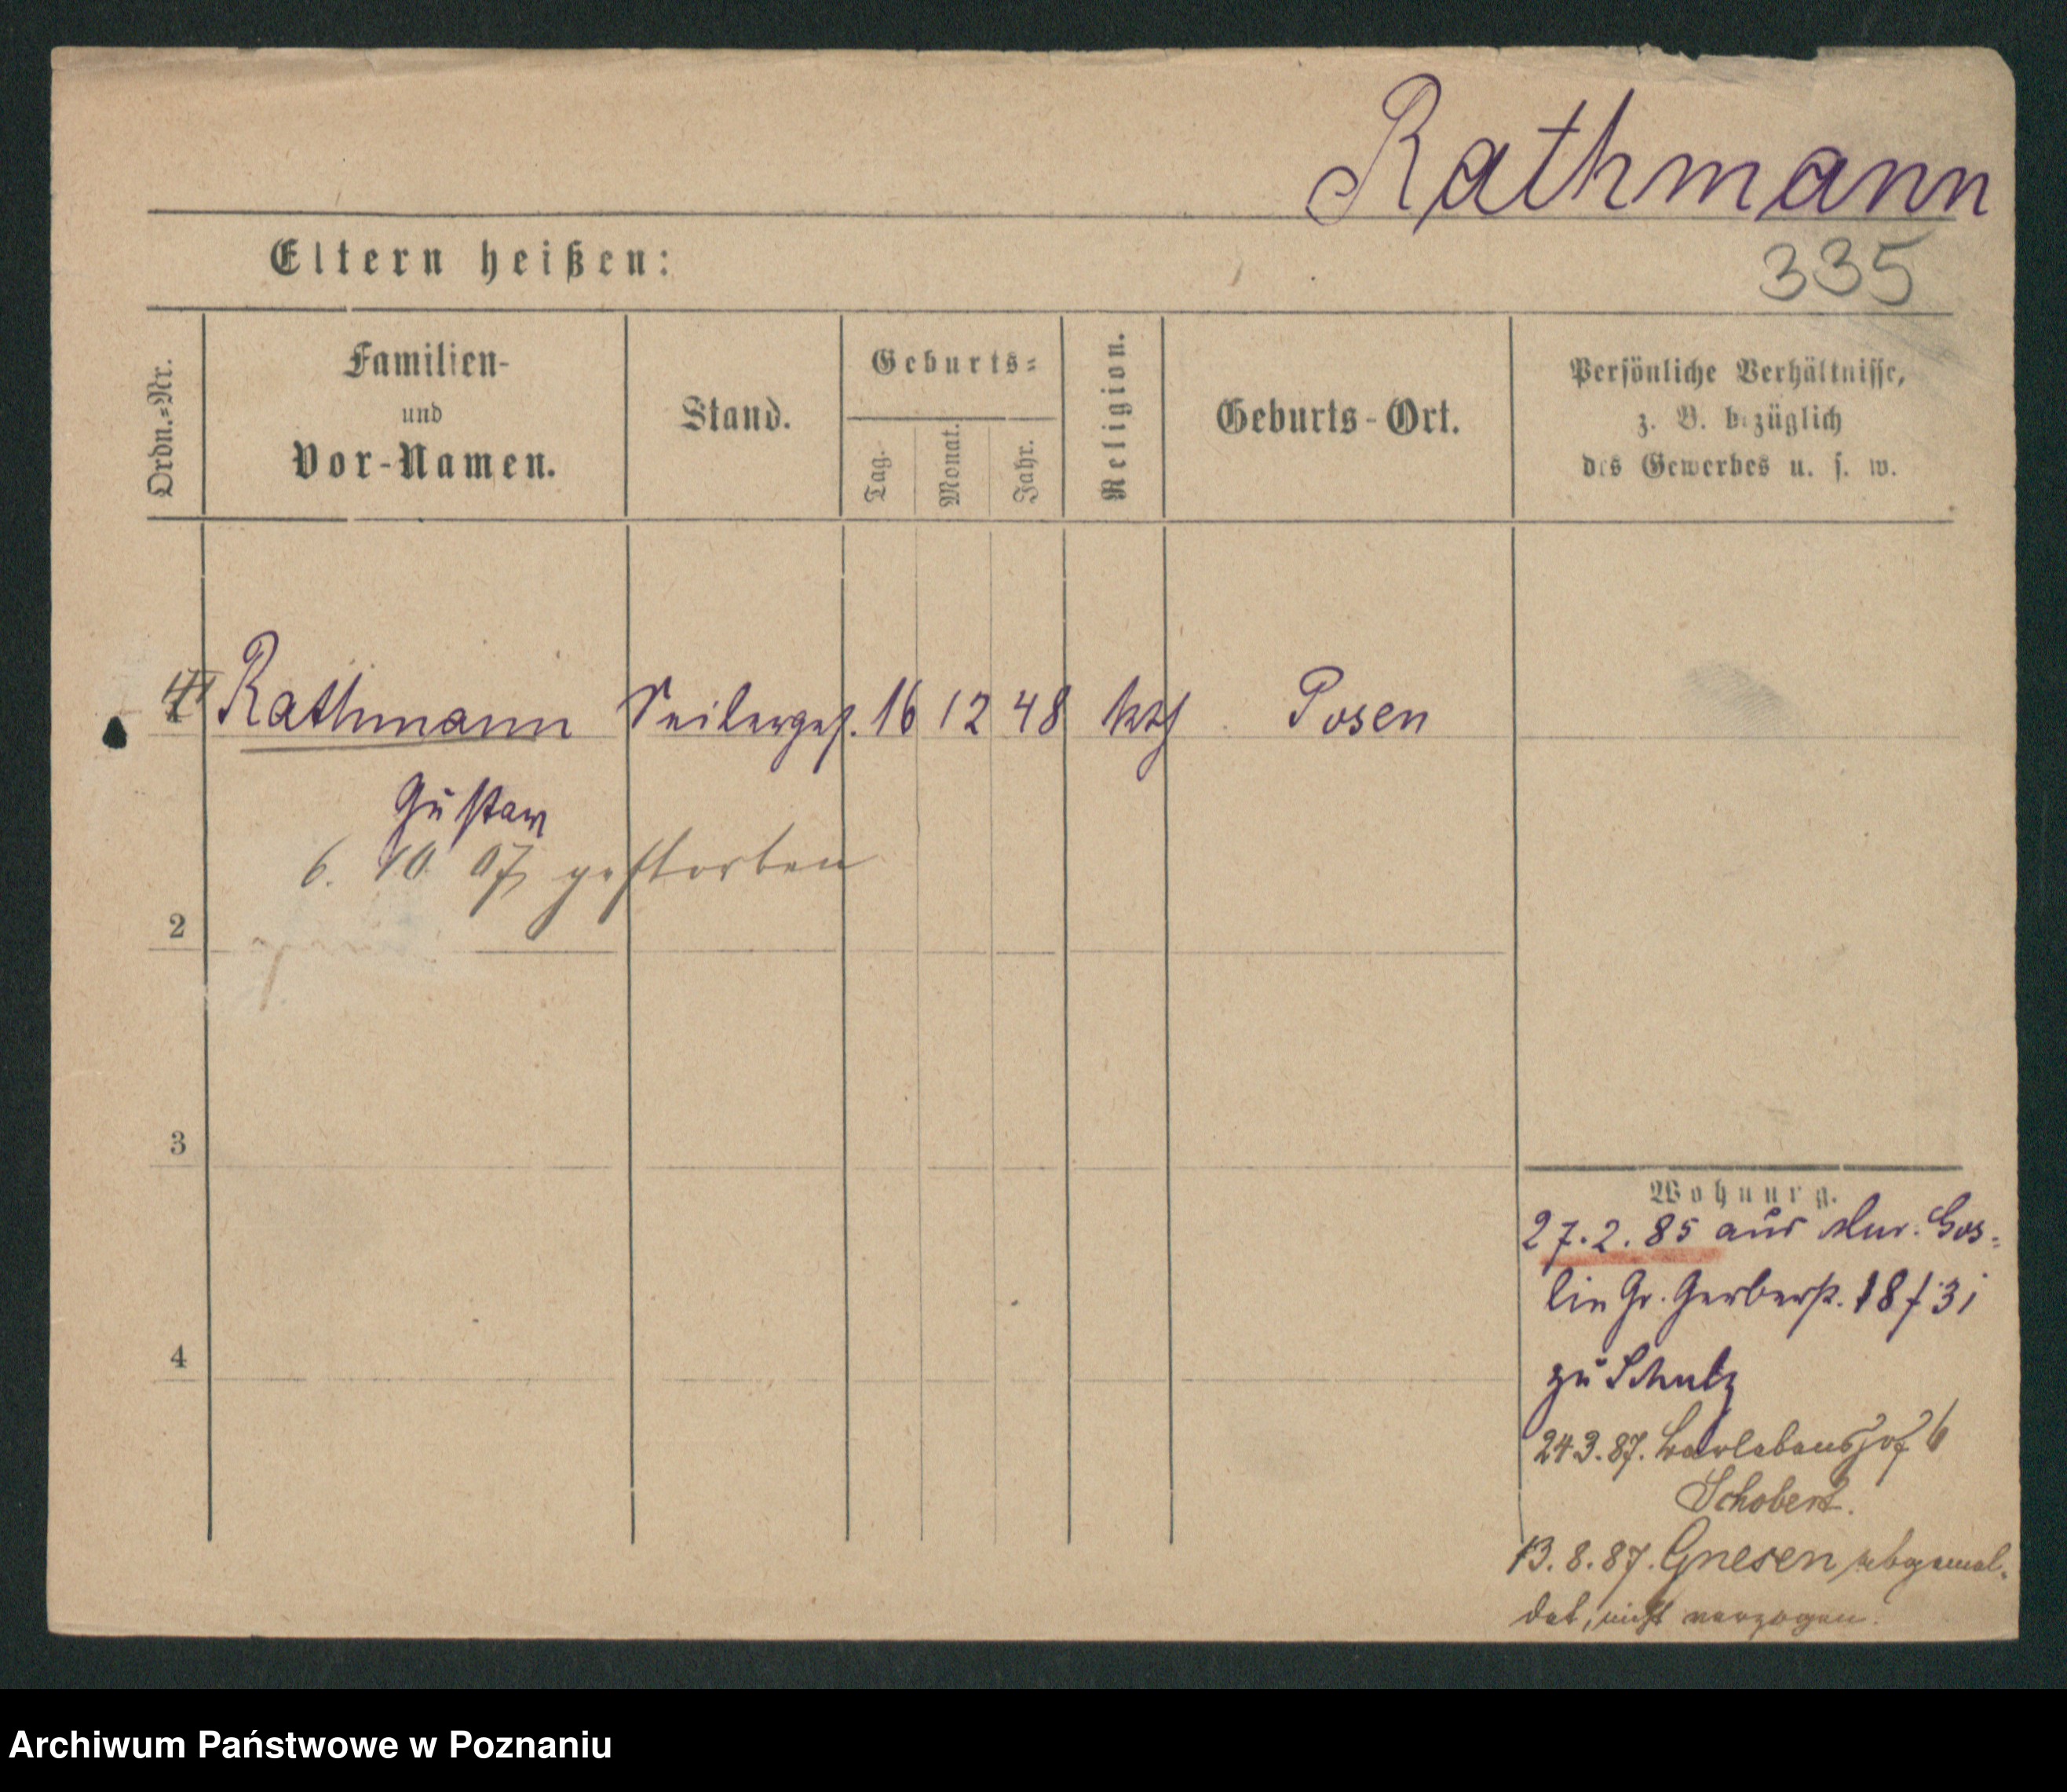 Rathmann
335
Eltern heißen:
Ordn.-Nr.
Familien-
und
Vor-Namen.
Stand.
Geburts-
Tag.
Monat.
Jahr.
Religion.
Geburts-Ort.
Persönliche Verhältnisse,
z. B. bezüglich
des Gewerbes u. s. w.
Rathmann Seilerges. 16 12 48 kth Posen
Gustav
6. 10 07 gestorben
2
3
4
Wohnung.
27.2.85 aus Mur. Gos-
lin Gr. Gerberst. 18
zu Schulz
24 3. 87. 6
Schobert.
13. 8. 87. Gnesen abgemel-
det, nicht verzogen.
Archiwum Państwowe w Poznaniu